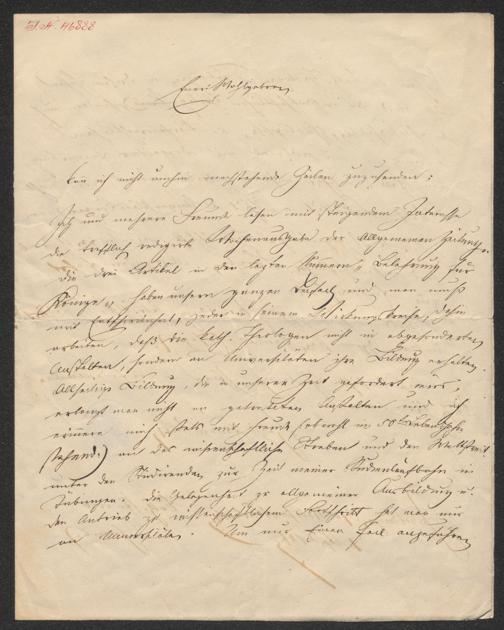 I.N. 46888
Euer Wohlgeboren
kann ich nicht umhin nachstehende Zeilen zuzusenden:
Ich und mehrere Freunde lesen mit steigendem Interesse
die trefflich redigirte Wochenausgabe der Allgemeinen Zeitung.
Die drei Artikel in den letzten Nummern " Belehrung für
Könige " haben unsern ganzen Beifall und man muß
mit Entschiedenheit, jeder in seinem Wirkungskreise, dahin
arbeiten, daß die kath. Theologen nicht in abgesonderten
Anstalten, sondern an Universitäten ihre Bildung erhalten.
Allseitige Bildung, die in unserer Zeit gefordert wird,
erlangt man nicht an getrennten Anstalten und ich
erinnere mich stets mit Freude sowohl in
an das wissenschaftliche Streben und den Wetteifer
unter den Studirenden zur Zeit meiner Studienlaufbahn in
Tübingen. Die Gelegenheit zu allgemeiner Ausbildung u.
den Antrieb zu wissenschaftlichem Fortschritt hat man nur
an Universitäten. Um nur Einen Fall anzuführen